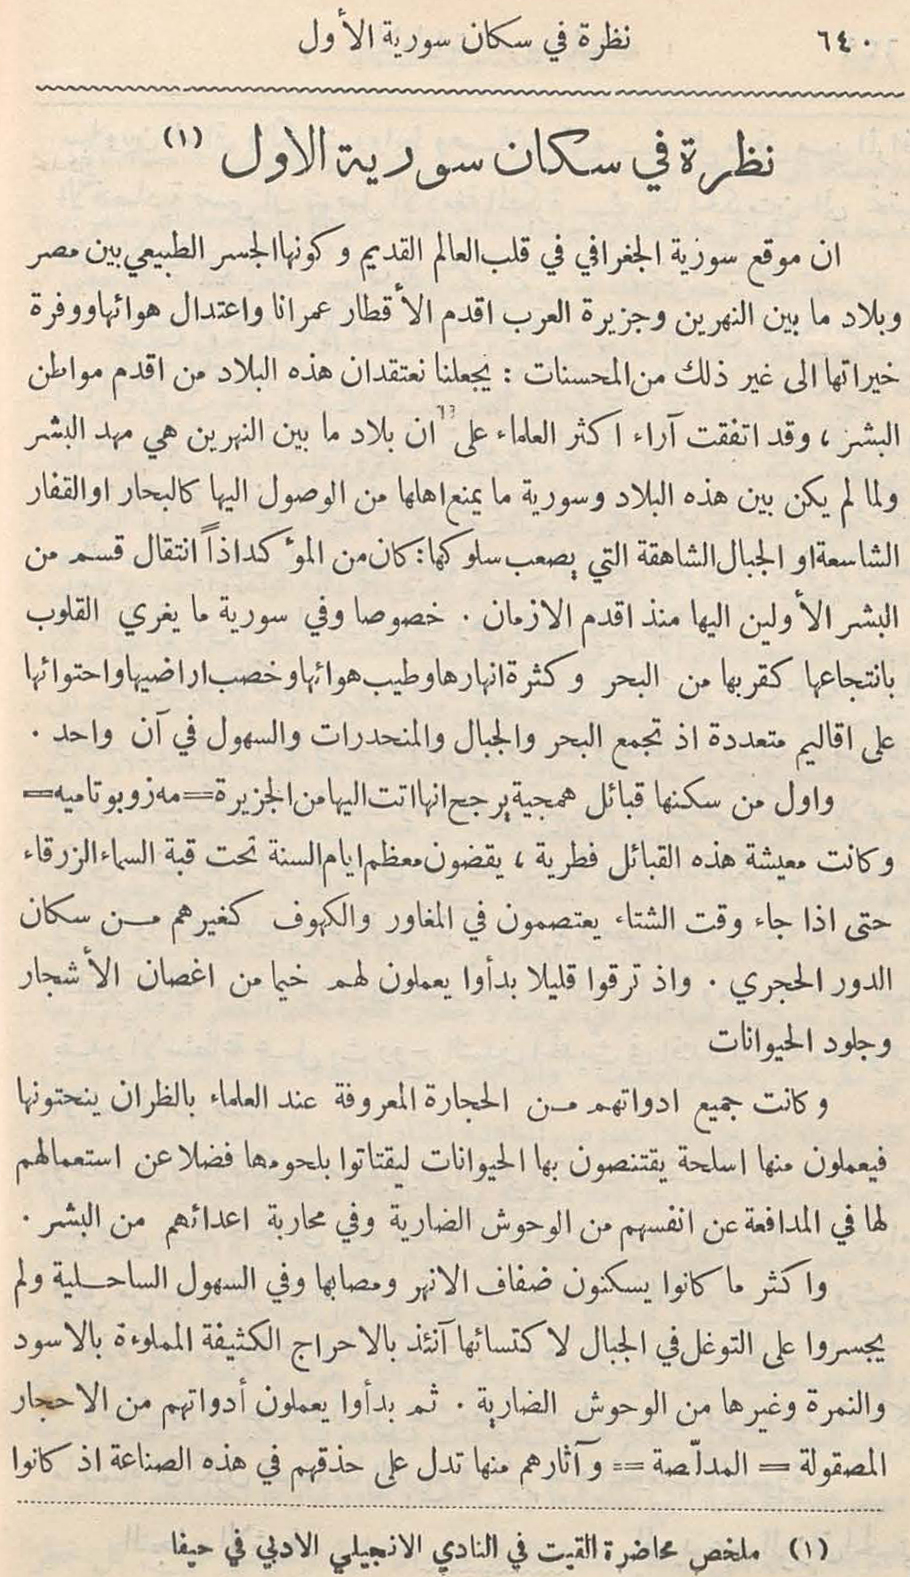 ٦٤٠ نظرة في سكان سورية الأول
نظرة في سكان سورية الاول (١)
ان موقع سورية الجغرافي في قلب العالم القديم وكونها الجسر الطبيعي بين مصر
وبلاد ما بين النهرين وجزيرة العرب اقدم الأقطار عمرانا واعتدال هوائها ووفرة
خيراتها الى غير ذلك من المحسنات : يجعلنا نعتقد ان هذه البلاد من اقدم مواطن
البشر ، وقد اتفقت آراء اكثر العلماء على ان بلاد ما بين النهرين هي مهد البشر
ولما لم يكن بين هذه البلاد وسورية ما يمنع اهلها من الوصول اليها كالبحار او القفار
الشاسعة او الجبال الشاهقة التي يصعب سلوكها : كان من المؤكد اذاً انتقال قسم من
البشر الأولين اليها منذ اقدم الازمان . خصوصا وفي سورية ما يغري القلوب
بانتجاعها كقربها من البحر وكثرة انهارها وطيب هوائها وخصب اراضيها واحتوائها
على اقاليم متعددة اذ تجمع البحر والجبال والمنحدرات والسهول في آن واحد .
واول من سكنها قبائل همجية يرجح انها اتت اليها من الجزيرة = مه زوبوتاميه =
وكانت معيشة هذه القبائل فطرية ، يقضون معظم ايام السنة تحت قبة السماء الزرقاء
حتى اذا جاء وقت الشتاء يعتصمون في المغاور والكهوف كغيرهم من سكان
الدور الحجري . واذ ترقوا قليلا بدأوا يعملون لهم خيما من اغصان الأشجار
وجلود الحيوانات
وكانت جميع ادواتهم من الحجارة المعروفة عند العلماء بالظران ينحتونها
فيعملون منها اسلحة يقتنصون بها الحيوانات ليقتاتوا بلحومها فضلا عن استعمالهم
لها في المدافعة عن انفسهم من الوحوش الضارية وفي محاربة اعدائهم من البشر .
واكثر ما كانوا يسكنون ضفاف الانهر ومصابها وفي السهول الساحلية ولم
يجسروا على التوغل في الجبال لاكتسائها آنئذ بالاحراج الكثيفة المملوءة بالاسود
والنمرة وغيرها من الوحوش الضارية . ثم بدأوا يعملون أدواتهم من الاحجار
المصقولة = المدلّصة = وآثارهم منها تدل على حذقهم في هذه الصناعة اذ كانوا
(١) ملخص محاضرة القيت في النادي الانجيلي الادبي في حيفا